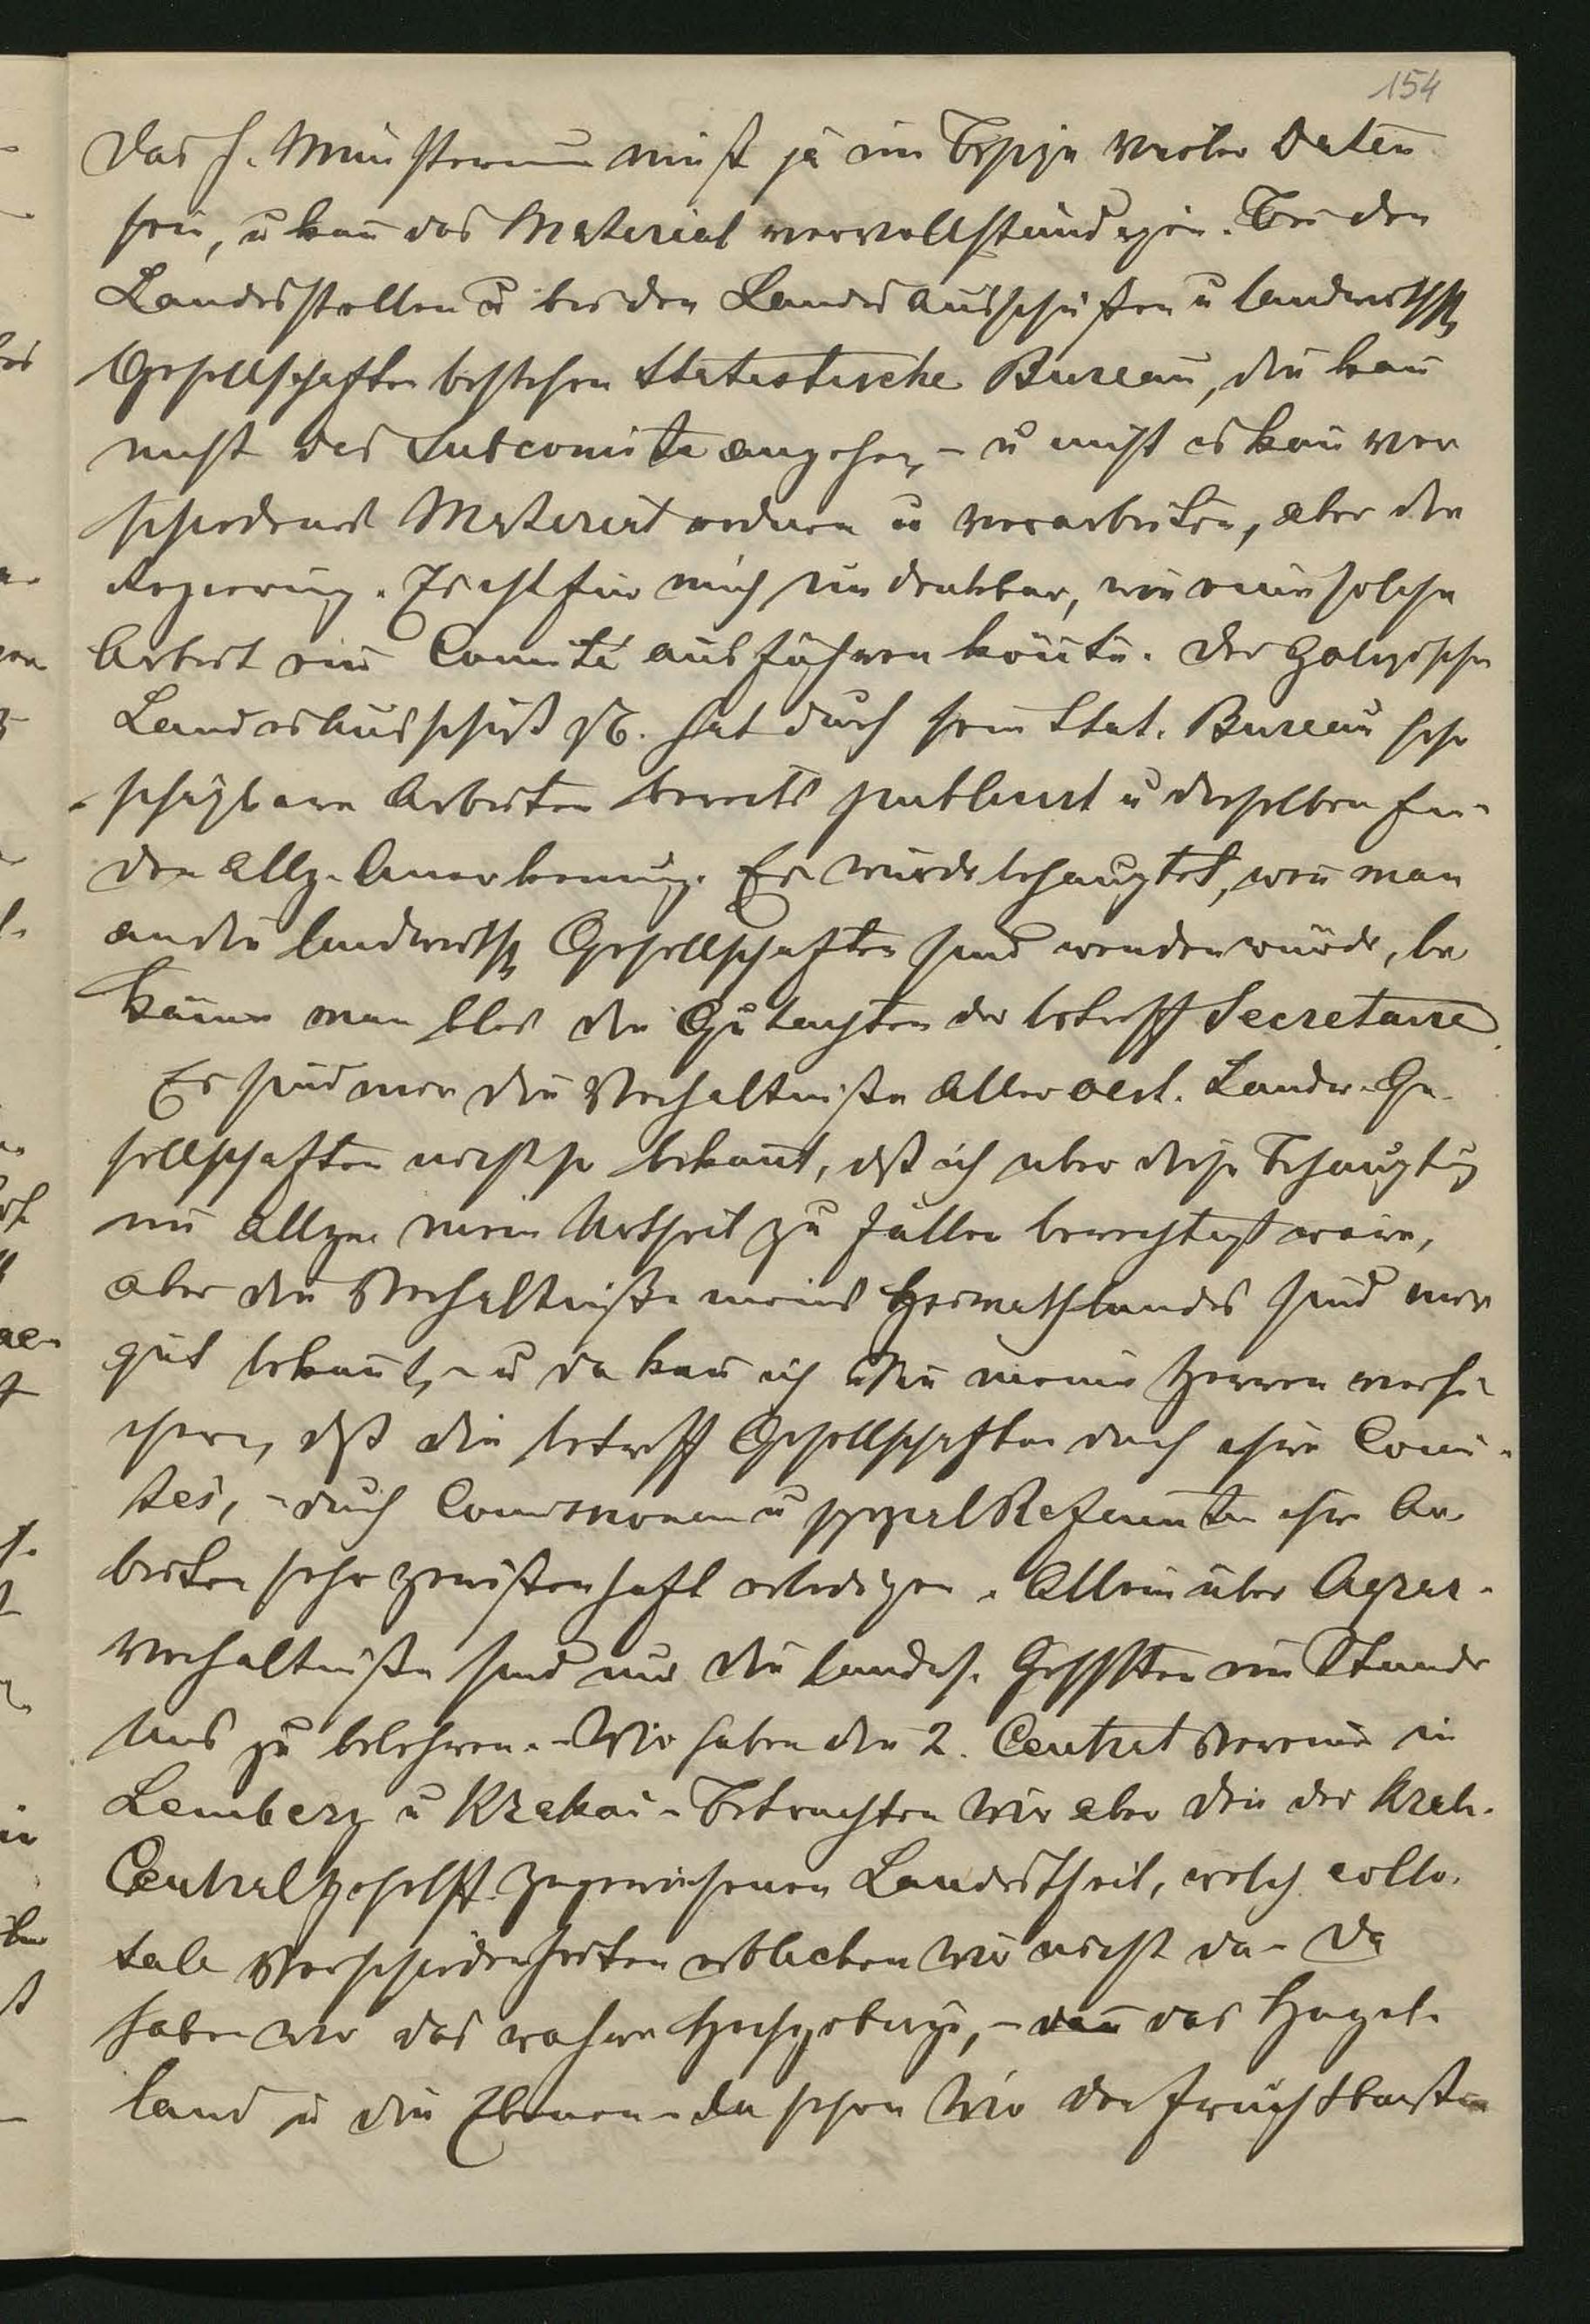 154
Das h. Ministerium muß ja im Besize vieler Daten
sein, u kañ das Material vervollständigen. Bei den
Landesstellen u bei den Landesausschüßen u landwirthsch
Gesellschaften bestehen statistische Bureau, die kañ
nicht das Subcomite angehen, – u nicht es kañ ver
schiedenes Material ordnen u verarbeiten, aber die
Regierung. Es ist für mich undenkbar, wie eine solche
Arbeit ein Comité ausführen köñte. Der galizische
Landesausschuß z.B. hat durch sein Stat. Bureau sehr
schäzbare Arbeiten bereits publicirt u dieselben fin-
den allg. Anerkennung. Es wurde behauptet, weñ man
an die landwirthsch Gesellschaften sich wenden würde, be
käme man blos die Gutachten der betreff Secretaire.
Es sind mir die Verhältniße aller oest. Landw. Ge-
sellschaften nicht so bekañt, dß ich über diese Behauptug
im allgemeinen Urtheil zu fällen berechtigt wäre,
aber die Verhältniße meines Heimathlandes sind mir
gut bekañt, – u da kañ ich Sie meine Herren versi-
chern, dß die betreff Gesellschaften durch ihre Comi-
tés, – durch Comissionen u spezial Referenten ihre Ar-
beiten sehr gewißenhaft erledigen. Allein über Agrar-
verhältniße sind nur die landw. Gesllschften im Stande
uns zu belehren. – Wir haben die 2. Central Vereine in
Lemberg u Krakau – Betrachten wir aber den der Krak.
Central gesellsft. zugewiesenen Landestheil, welch collo-
sale Verschiedenheiten erblicken wir nicht da – Da
haben wir das wahre Hochgebirge, – dañ das Hügel-
land u die Ebenen – da sehen wir die fruchtbarsten